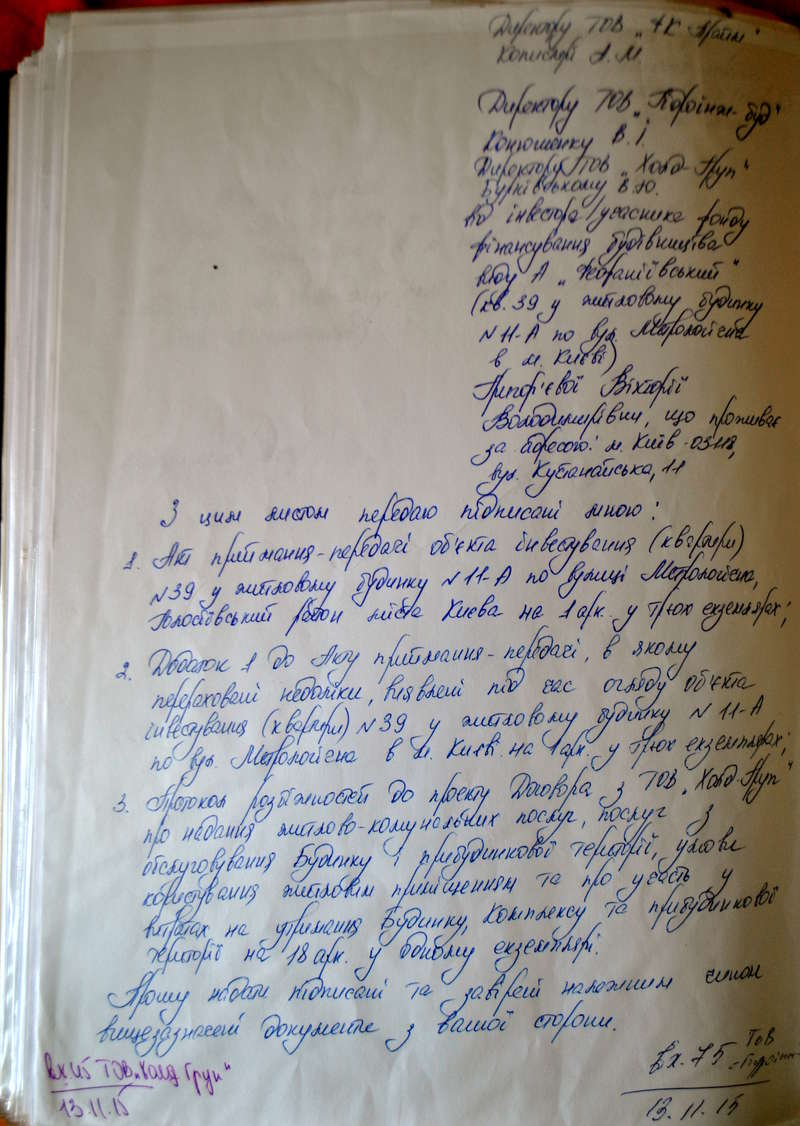 Директору ТОВ „ФК Прайм"
А.М.
Директору ТОВ „Пороінж-буд"
Конюшенку В.І.
Директору ТОВ „Холд-Груп"
Бурківському В.Ю.
Від інвестора/учасника фонду
фінансування будівництва
виду А „Феофаніївський"
(кв. 39 у житловому будинку
N 11-А по вул. Метрологічна
в м. Києві)
Григор'євої Вікторії
Володимирівни, що проживає
за адресою: м. Київ-03118,
вул. Кустанайська, 11
З цим листом передаю підписані мною:
1. Акт приймання-передачі об'єкта інвестування (квартири)
N 39 у житловому будинку N 11-А по вулиці Метрологічна,
Голосіївський район міста Києва на 1 арк. у трьох екземплярах;
2. Додаток 1 до Акту приймання-передачі, в якому
перераховані недоліки, виявлені під час огляду об'єкта
інвестування (квартири) N 39 у житловому будинку N 11-А
по вул. Метрологічна в м. Києві на 1 арк. у трьох екземплярах;
3. Протокол розбіжностей до проекту Договора з ТОВ „Холд-Груп"
про надання житлово-комунальних послуг, послуг з
обслуговування Будинку і прибудинкової території, умови
користування житловим приміщенням та про участь у
витратах на утримання Будинку, Комплексу та прибудинкової
території на 18 арк. у одному екземплярі.
Прошу надати підписані та завірені належним чином
вищезазначені документи з вашої сторони.
Вх. 115 ТОВ „Холд Груп"
13.11.15
Вх. 75 ТОВ
13.11.15